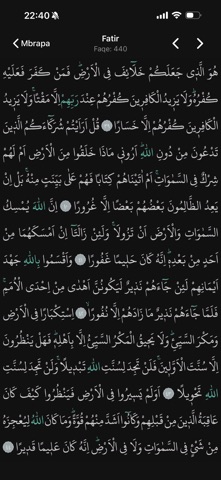 22:40
Fatir
Mbrapa
Faqe: 440
هُوَ الَّذِى جَعَلَكُمْ خَلَٓائِفَ فِى الْاَرْضِۜ فَمَنْ كَفَرَ فَعَلَيْهِ
كُفْرُهُۜ وَلَا يَزِيدُ الْكَافِرِينَ كُفْرُهُمْ عِنْدَ رَبِّهِمْ اِلَّا مَقْتًاۚ وَلَا يَزِيدُ
الْكَافِرِينَ كُفْرُهُمْ اِلَّا خَسَارًا ﴿٣٩﴾ قُلْ اَرَاَيْتُمْ شُرَكَٓاءَكُمُ الَّذِينَ
تَدْعُونَ مِنْ دُونِ اللّٰهِۜ اَرُونِى مَاذَا خَلَقُوا مِنَ الْاَرْضِ اَمْ لَهُمْ
شِرْكٌ فِى السَّمٰوَاتِۚ اَمْ اٰتَيْنَاهُمْ كِتَابًا فَهُمْ عَلٰى بَيِّنَتٍ مِنْهُۚ بَلْ اِنْ
يَعِدُ الظَّالِمُونَ بَعْضُهُمْ بَعْضًا اِلَّا غُرُورًا ﴿٤٠﴾ اِنَّ اللّٰهَ يُمْسِكُ
السَّمٰوَاتِ وَالْاَرْضَ اَنْ تَزُولَاۚ وَلَئِنْ زَالَتَٓا اِنْ اَمْسَكَهُمَا مِنْ
اَحَدٍ مِنْ بَعْدِهِۜ اِنَّهُ كَانَ حَلِيمًا غَفُورًا ﴿٤١﴾ وَاَقْسَمُوا بِاللّٰهِ جَهْدَ
اَيْمَانِهِمْ لَئِنْ جَٓاءَهُمْ نَذِيرٌ لَيَكُونُنَّ اَهْدٰى مِنْ اِحْدَى الْاُمَمِۚ
فَلَمَّا جَٓاءَهُمْ نَذِيرٌ مَا زَادَهُمْ اِلَّا نُفُورًاۙ ﴿٤٢﴾ اِسْتِكْبَارًا فِى الْاَرْضِ
وَمَكْرَ السَّيِّئِۜ وَلَا يَحِيقُ الْمَكْرُ السَّيِّئُ اِلَّا بِاَهْلِهِۜ فَهَلْ يَنْظُرُونَ
اِلَّا سُنَّتَ الْاَوَّلِينَۚ فَلَنْ تَجِدَ لِسُنَّتِ اللّٰهِ تَبْدِيلًاۚ وَلَنْ تَجِدَ لِسُنَّتِ
اللّٰهِ تَحْوِيلًا ﴿٤٣﴾ اَوَلَمْ يَسِيرُوا فِى الْاَرْضِ فَيَنْظُرُوا كَيْفَ كَانَ
عَاقِبَةُ الَّذِينَ مِنْ قَبْلِهِمْ وَكَانُٓوا اَشَدَّ مِنْهُمْ قُوَّةًۜ وَمَا كَانَ اللّٰهُ لِيُعْجِزَهُ
مِنْ شَىْءٍ فِى السَّمٰوَاتِ وَلَا فِى الْاَرْضِۜ اِنَّهُ كَانَ عَلِيمًا قَدِيرًا ﴿٤٤﴾